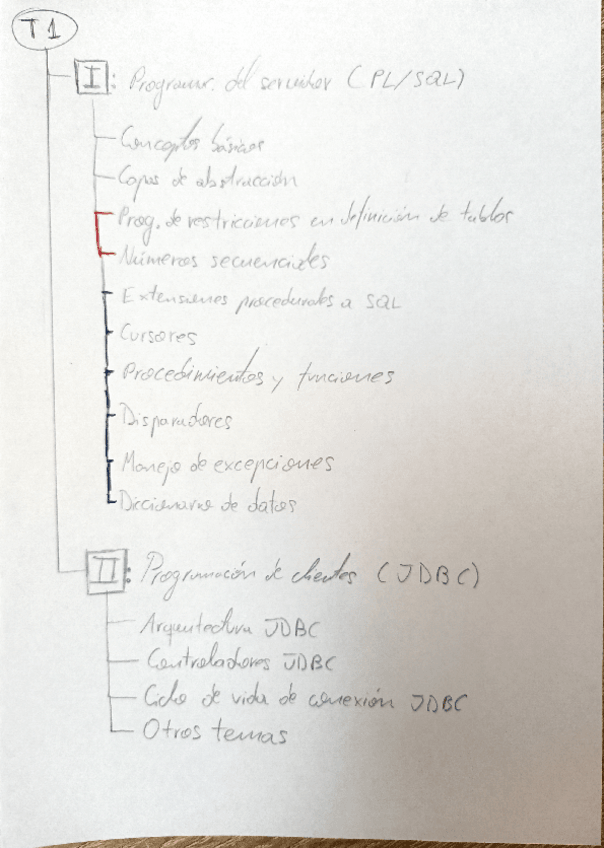 T1
I: Programr. del servidor (PL/SQL)
Conceptos básicos
Capas de abstracción
Prog. de restricciones en definición de tablas
Números secuenciales
Extensiones procedurales a SQL
Cursores
Procedimientos y funciones
Disparadores
Manejo de excepciones
Diccionario de datos
II: Programación de clientes (JDBC)
Arquitectura JDBC
Controladores JDBC
Ciclo de vida de conexión JDBC
Otros temas